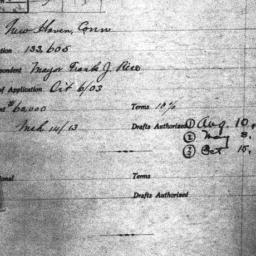 New Haven, Conn
tion 133,605
pondent Mayor Frank J. Rice
of Application Oct 6/03
nt $60,000 Terms 10%
Mch 14/13 Drafts Authorized ① Aug 10,
② May 8,
③ Oct 15,
ional Terms
Drafts Authorized